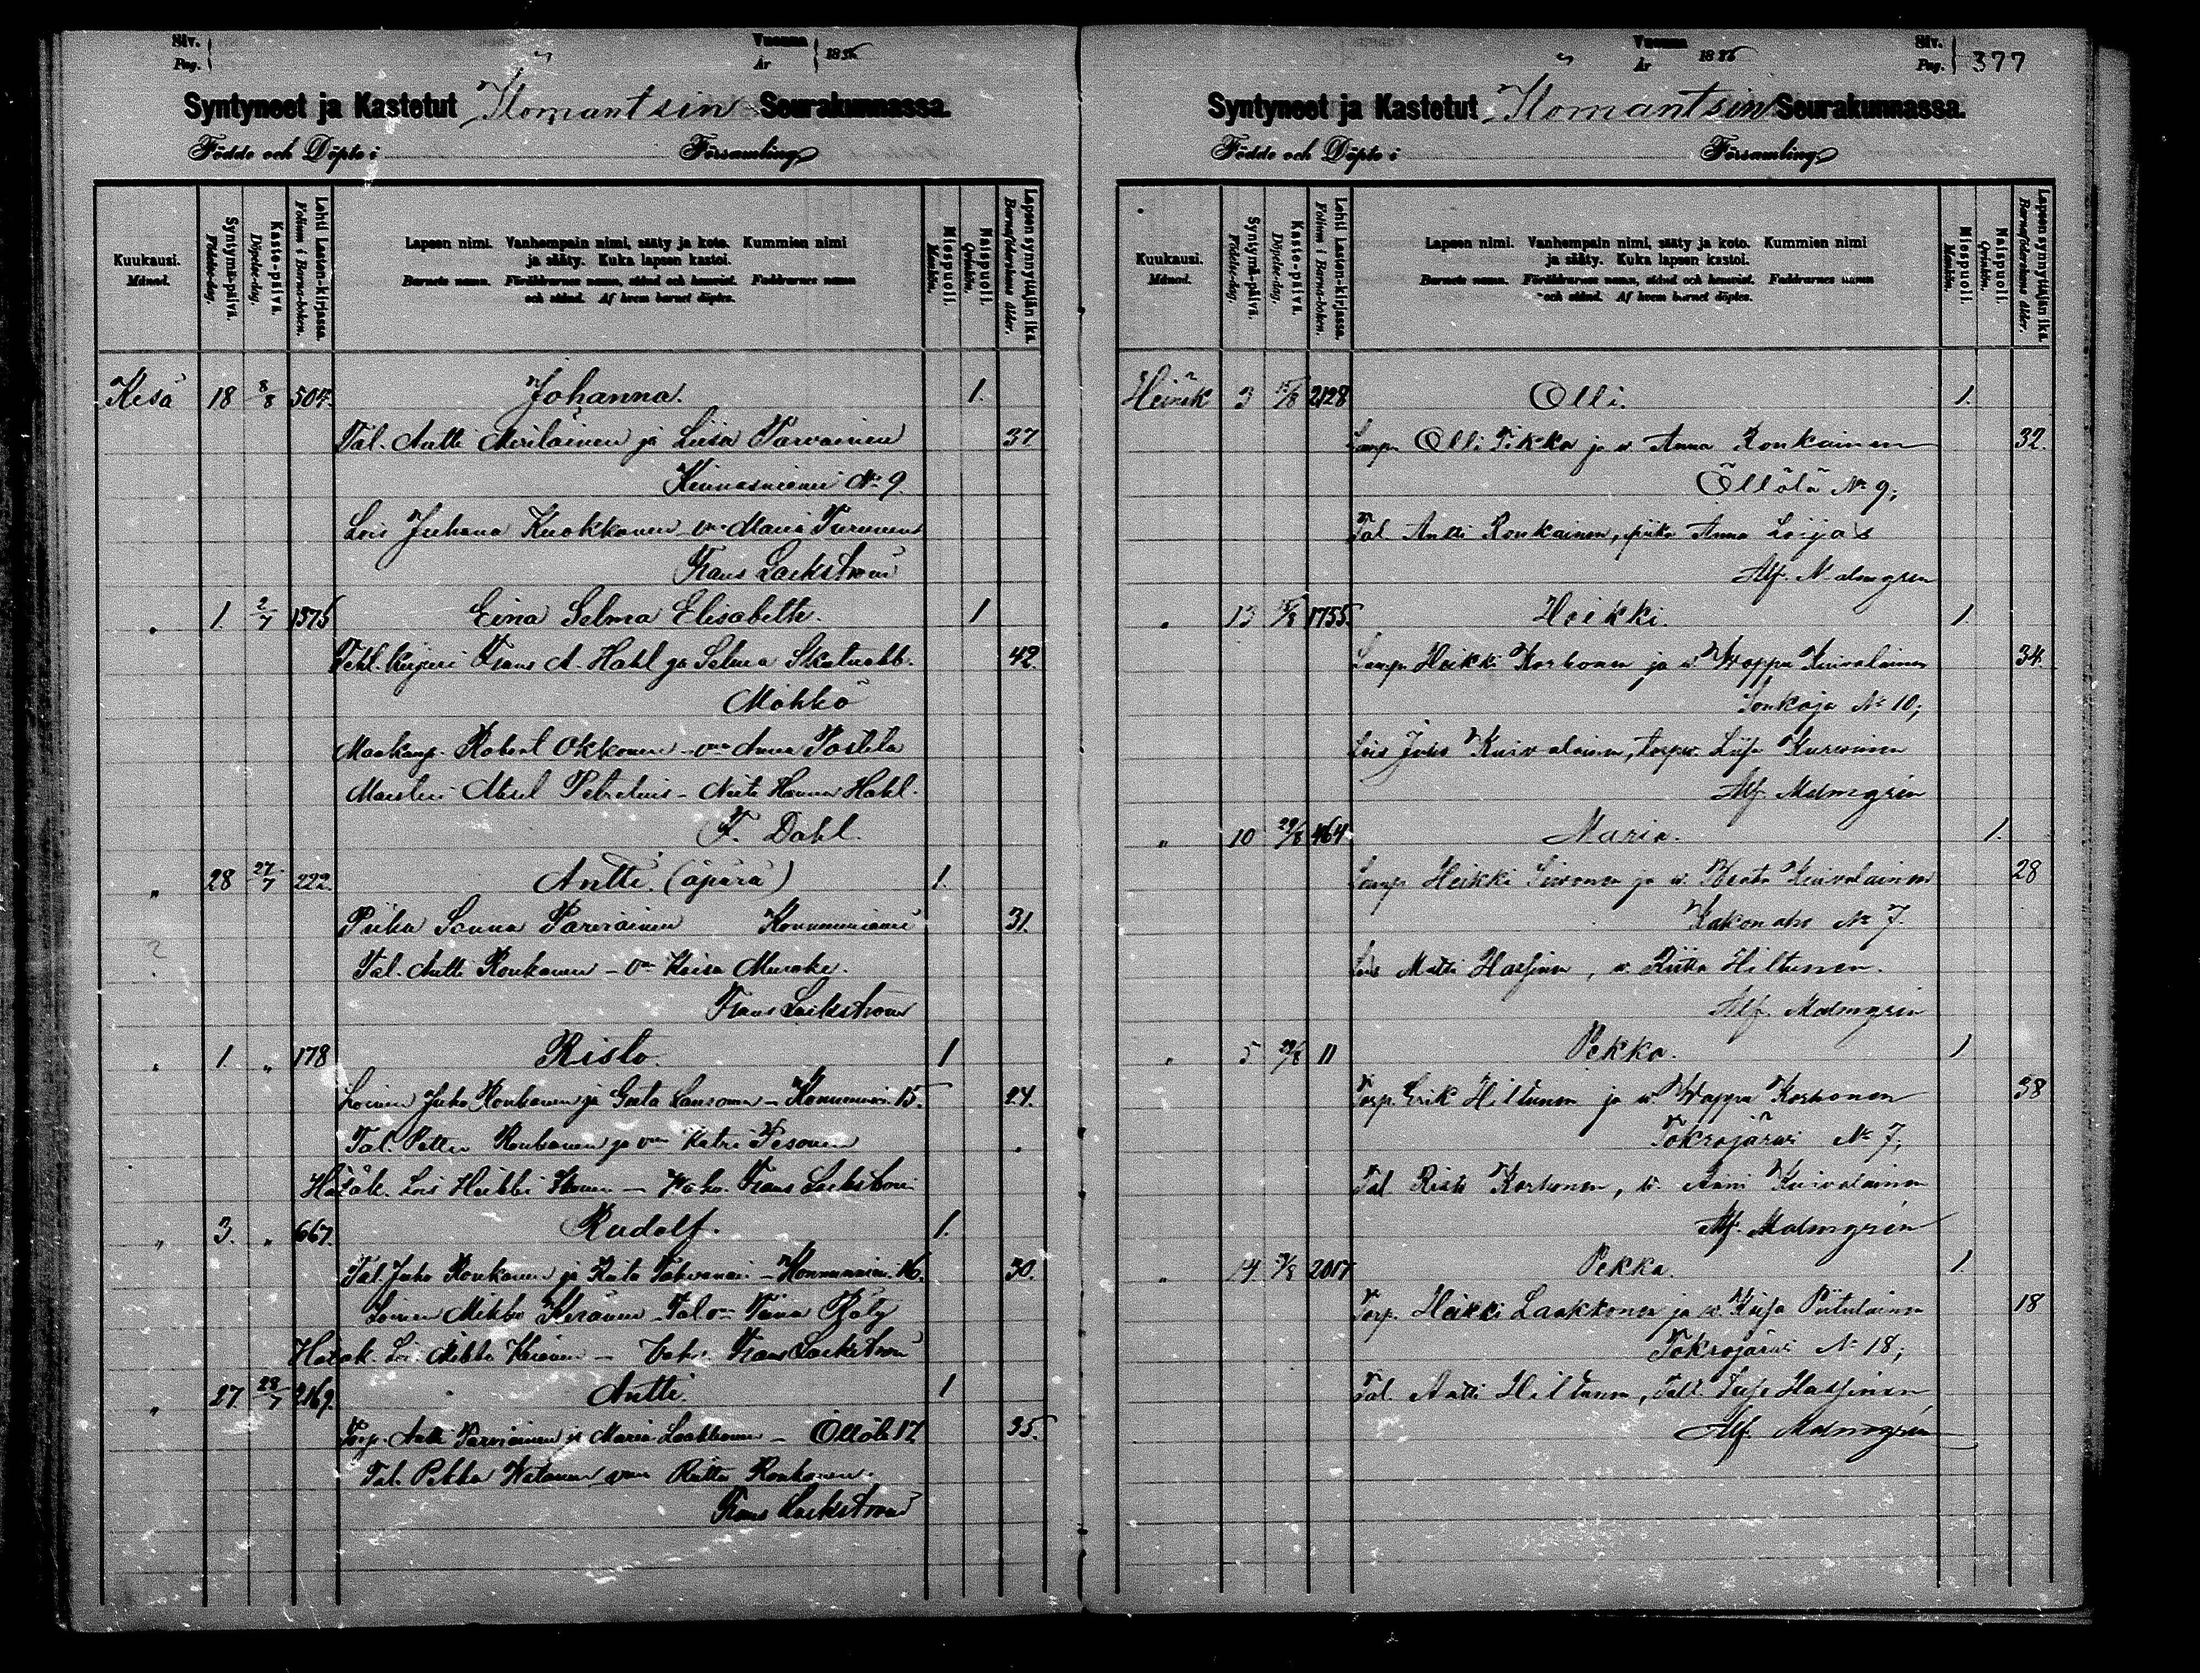 Siv.
Pag.
Vuonna
År
1886
Syntyneet ja Kastetut Ilomantsin Seurakunnassa.
Födde och Döpte i Församling
Kuukausi.
Månad.
Syntymä-päivä.
Födelse-dag.
Kaste-päivä.
Döpelse-dag.
Lehti Lasten-kirjassa.
Folium i Barna-boken.
Lapsen nimi. Vanhempain nimi, sääty ja koto. Kummien nimi
ja sääty. Kuka lapsen kastoi.
Barnets namn. Föräldrarnes namn, stånd och hemvist. Faddrarnes namn
och stånd. Af hvem barnet döptes.
Miespuoli.
Mankön.
Naispuoli.
Qvinkön.
Lapsen synnyttäjän ikä.
Barnaföderskans ålder.
Kesä 18 8/8 504. Johanna. 1.
Tal. Antti Meriläinen ja Liisa Parvainen 37
Kinnasniemi No 9.
Lois Juhana Kuokkanen - vmo Maria Turunen
Frans Lackström
" 1. 2/7 1575 Eina Selma Elisabetta. 1
Frans A. Hahl ja Selma 42.
Möhkö
Robert Okkonen - vmo Anna
Maisteri Petrelius - Neiti Hanna Hahl.
F. Dahl.
" 28 27/7 222. Antti. (äpärä) 1.
Piika Sanna Parviainen Konnunniemi 31.
Tal. Antti Ronkanen - vmo Kaisa
Frans Lackström
" 1. " 178 Risto. 1
Loinen Juho Ronkanen ja 15. 24.
Tal. Petter Ronkanen ja vmo Katri Pesonen
Hätäk. Lois Heikki - Vahv. Frans Lackström
" 3. " 667. Rudolf. 1.
Tal. Juho Ronkanen ja Riita - 16. 30.
Loinen Mikko Keränen - Tal. vmo
Hätäk. Lois Mikko Keränen - Vahv. Frans Lackström
" 27 28/7 2169. Antti. 1
Torp. Antti Parviainen ja Maria Laakkonen - Öllölä 17 35.
Tal. Pekka vmo Riitta Ronkanen.
Frans Lackström
Vuonna
År
1886
Siv.
Pag.
377
Syntyneet ja Kastetut Ilomantsin Seurakunnassa.
Födde och Döpte i Församling
Kuukausi.
Månad.
Syntymä-päivä.
Födelse-dag.
Kaste-päivä.
Döpelse-dag.
Lehti Lasten-kirjassa.
Folium i Barna-boken.
Lapsen nimi. Vanhempain nimi, sääty ja koto. Kummien nimi
ja sääty. Kuka lapsen kastoi.
Barnets namn. Föräldrarnes namn, stånd och hemvist. Faddrarnes namn
och stånd. Af hvem barnet döptes.
Miespuoli.
Mankön.
Naispuoli.
Qvinkön.
Lapsen synnyttäjän ikä.
Barnaföderskans ålder.
Heinäk 3 15/8 2128 Olli. 1.
Lamp. Olli Tikka ja v. Anna Ronkainen 32.
Öllölä No 9;
Tal. Antti Ronkainen, piika Anna Loijas
Alf. Malmgrén
" 13 15/8 1755. Heikki. 1
Lamp. Heikki Korhonen ja v. Wappu Kuivalainen 34.
Sonkaja No 10;
Lois Juho Kuivalainen, torp.v. Liisa Kurvinen
Alf. Malmgrén
" 10 29/8 464. Maria. 1.
Lamp. Heikki Sivonen ja v. Beata Kuivalainen 28
Kakonaho No 7.
Lois Matti Hassinen, v. Riitta Hiltunen.
Alf. Malmgrén
" 5 29/8 11 Pekka. 1
Torp. Erik Hiltunen ja v. Wappu Korhonen 38
Tokrajärvi No 7;
Tal. Risto Korhonen, v. Anni Kuivalainen
Alf. Malmgrén
" 14 2017 Pekka. 1.
Torp. Heikki Laakkonen ja v. Kaisa Piitulainen 18
Tokrajärvi No 18;
Tal. Antti Hiltunen, Hassinen
Alf. Malmgrén